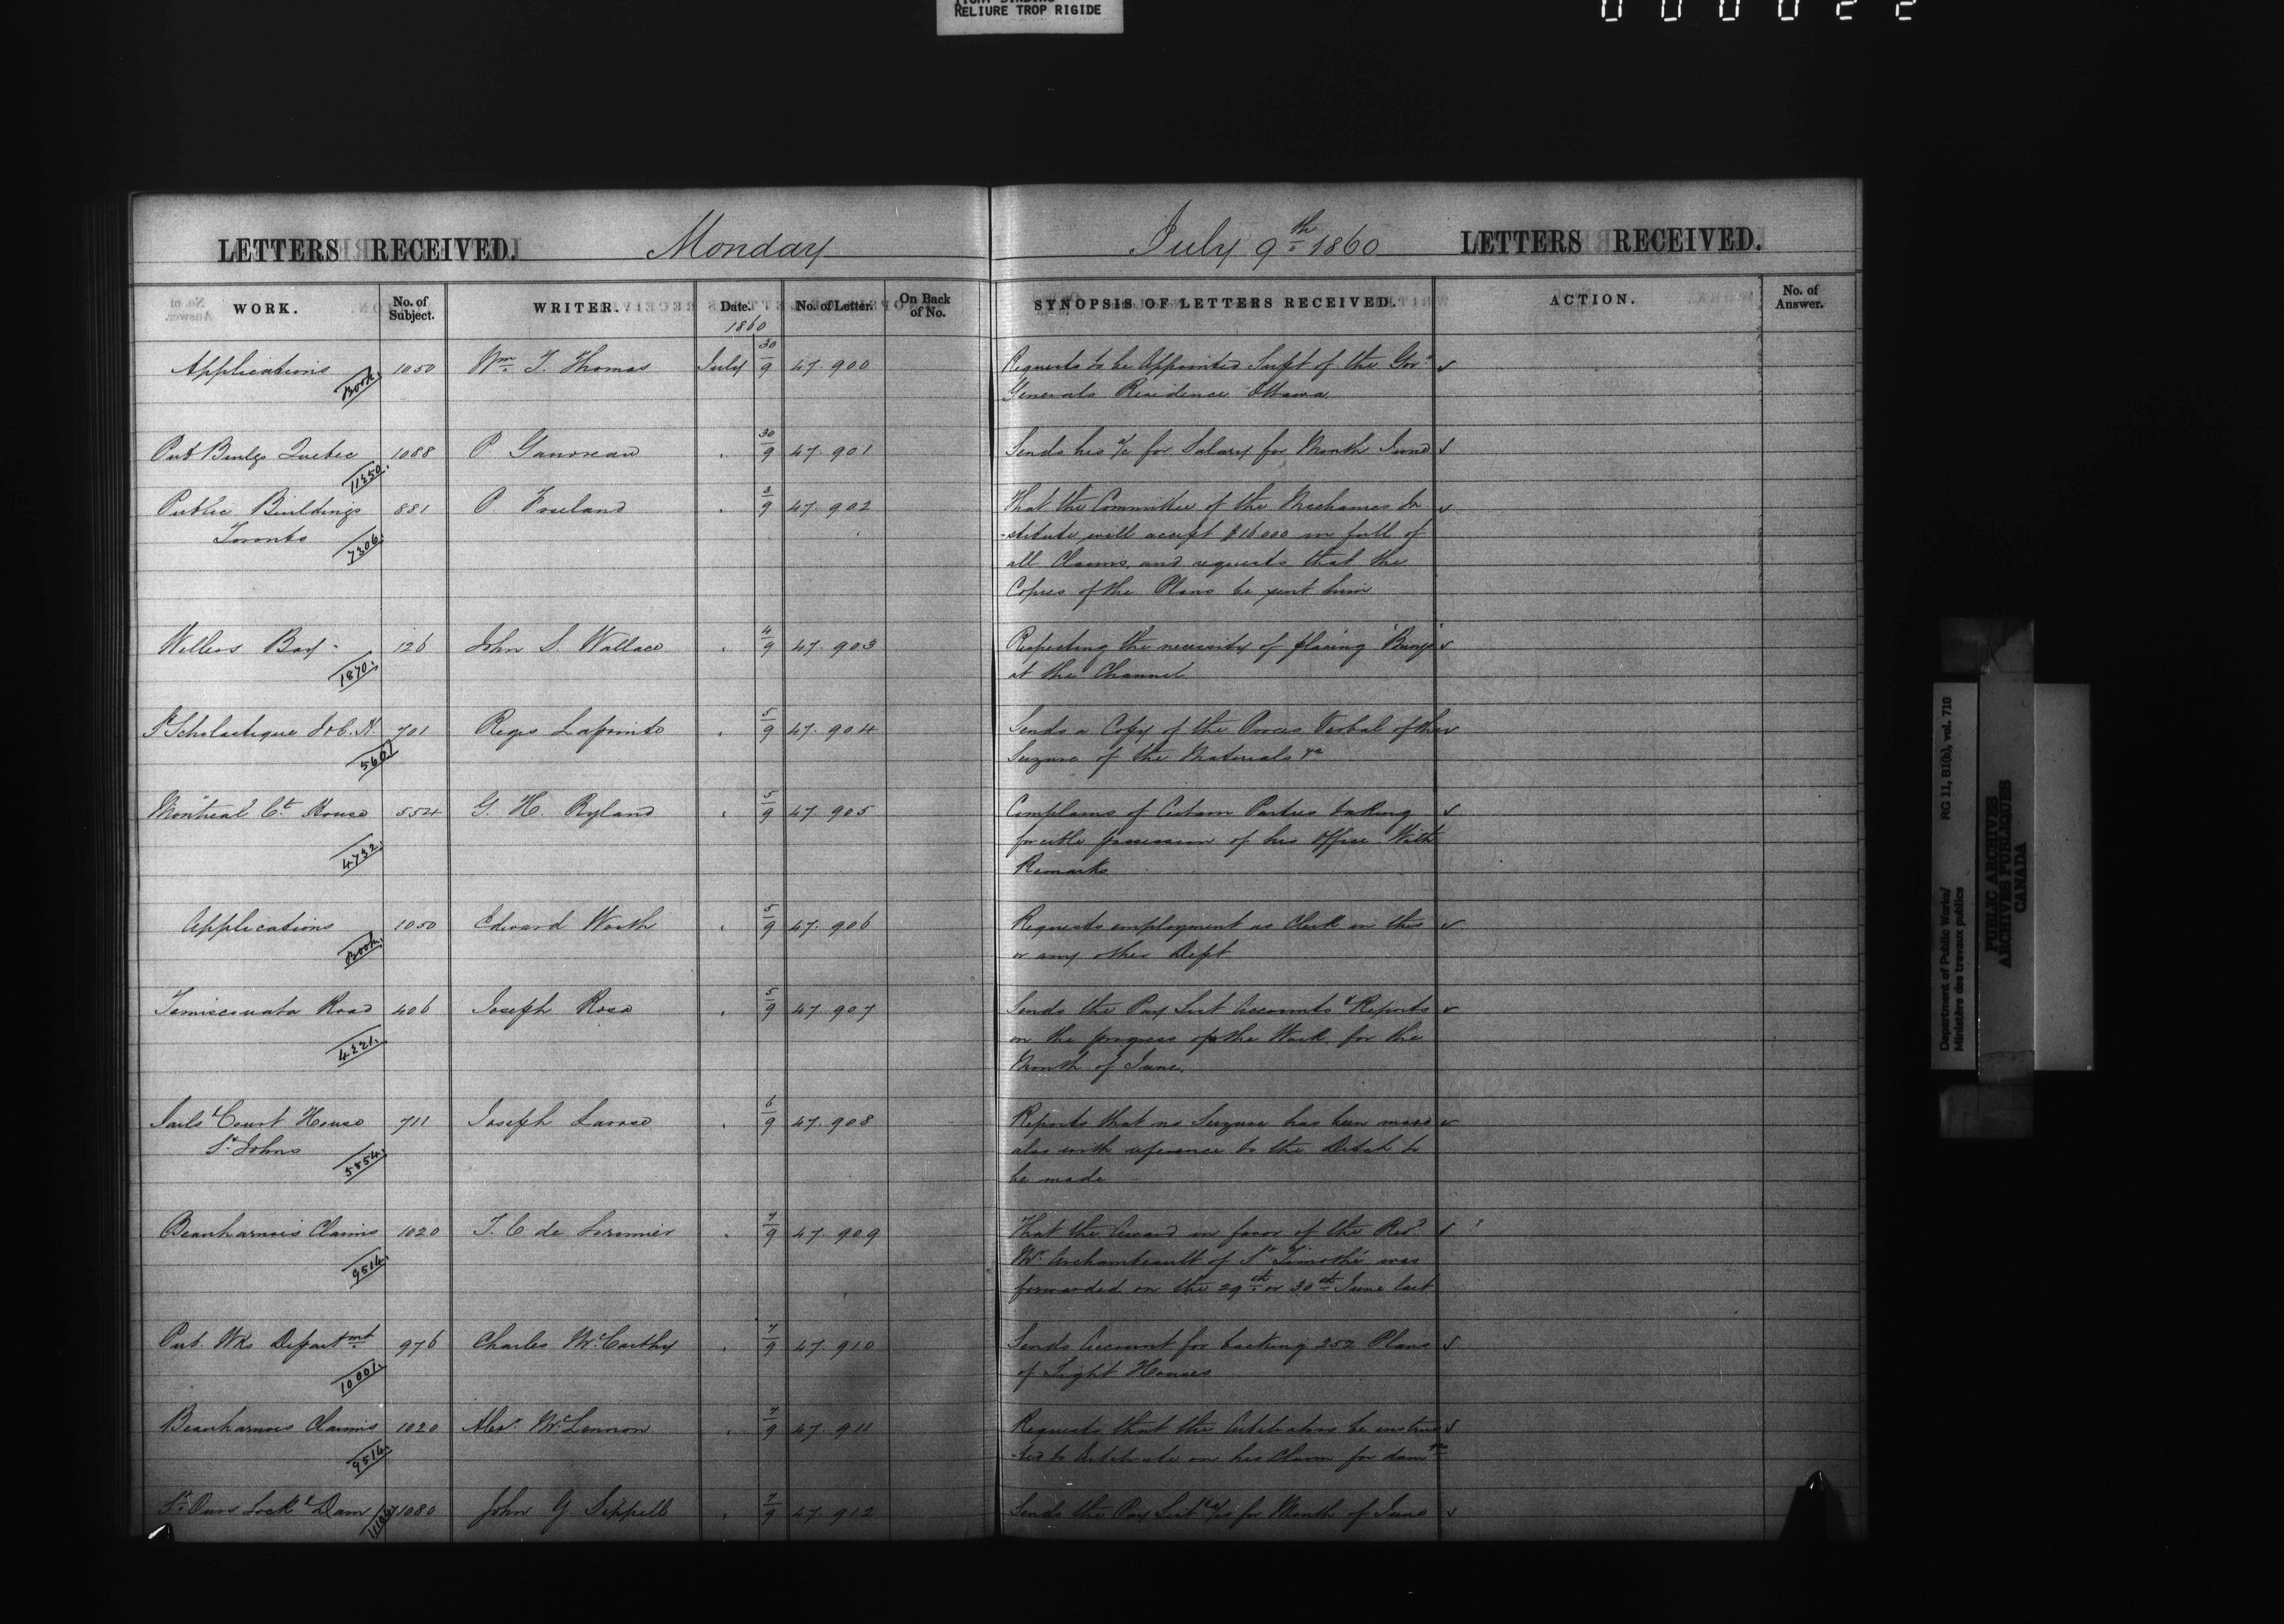 TIGHT BINDING
RELIURE TROP RIGIDE
0 0 0 0 2 2
LETTERS RECEIVED. Monday July 9th 1860 LETTERS RECEIVED.
WORK. No. of Subject. WRITER. Date. No. of Letter. On Back of No. SYNOPSIS OF LETTERS RECEIVED. ACTION. No. of Answer.
1860
Applications 1050 Wm. T. Thomas July 30/9 47.900 Requests to be Appointed Supt of the Gov.
Book. Generals Residence Ottawa
Pub Buildgs Quebec 1088 P. Gauvreau 30/9 47.901 Sends his a/c for Salary for Month June
11350.
Public Buildings 881 P. Freeland 3/9 47.902 That the Committee of the Mechanics In
Toronto 7306. -stitute will accept $16000 in full of
all Claims, and requests that the
Copies of the Plans be sent him
Wellers Bay 126 John S. Wallace 4/9 47.903 Respecting the necessity of placing "Buoys"
1870. at the Channel
St Scholastique J & C. H. 701 Regis Lapointe 5/9 47.904 Sends a Copy of the Proces Verbal of the
5601 Seizure of the Materials &c
Montreal Ct. House 554 G. H. Ryland 5/9 47.905 Complains of Certain Parties taking
4732. forcible possession of his Office With
Remarks
Applications 1050 Edward Worth 5/9 47.906 Requests employment as Clerk in this
Book. or any other Dept
Temiscouata Road 406 Joseph Rosa 5/9 47.907 Sends the Pay List Accounts & Reports
4221. on the progress of the Work, for the
Month of June.
Jails & Court House 711 Joseph Larose 6/9 47.908 Reports that no Seizure has been made
St. Johns 5854. also with reference to the Ditch to
be made
Beauharnois Claims 1020 T. C. de Lorimier 7/9 47.909 That the Award in favor of the Revd.
9514. Mr. Archambeault of St. Timothé was
forwarded on the 29th or 30th June last
Pub. Wks Departmt. 976 Charles McCarthy 7/9 47.910 Sends Account for backing 252 Plans
10001. of Light Houses
Beauharnois Claims 1020 Alexr. McLennon 7/9 47.911 Requests that the Arbitrators be instruc
9514. -ted to Arbitrate on his Claim for damges
St. Ours Lock & Dam 1080 John G. Sippell 7/9 47.912 Sends the Pay List & a/cs for Month of June
Department of Public Works/ RG 11, B1(b), vol. 710
Ministère des travaux publics
PUBLIC ARCHIVES
ARCHIVES PUBLIQUES
CANADA